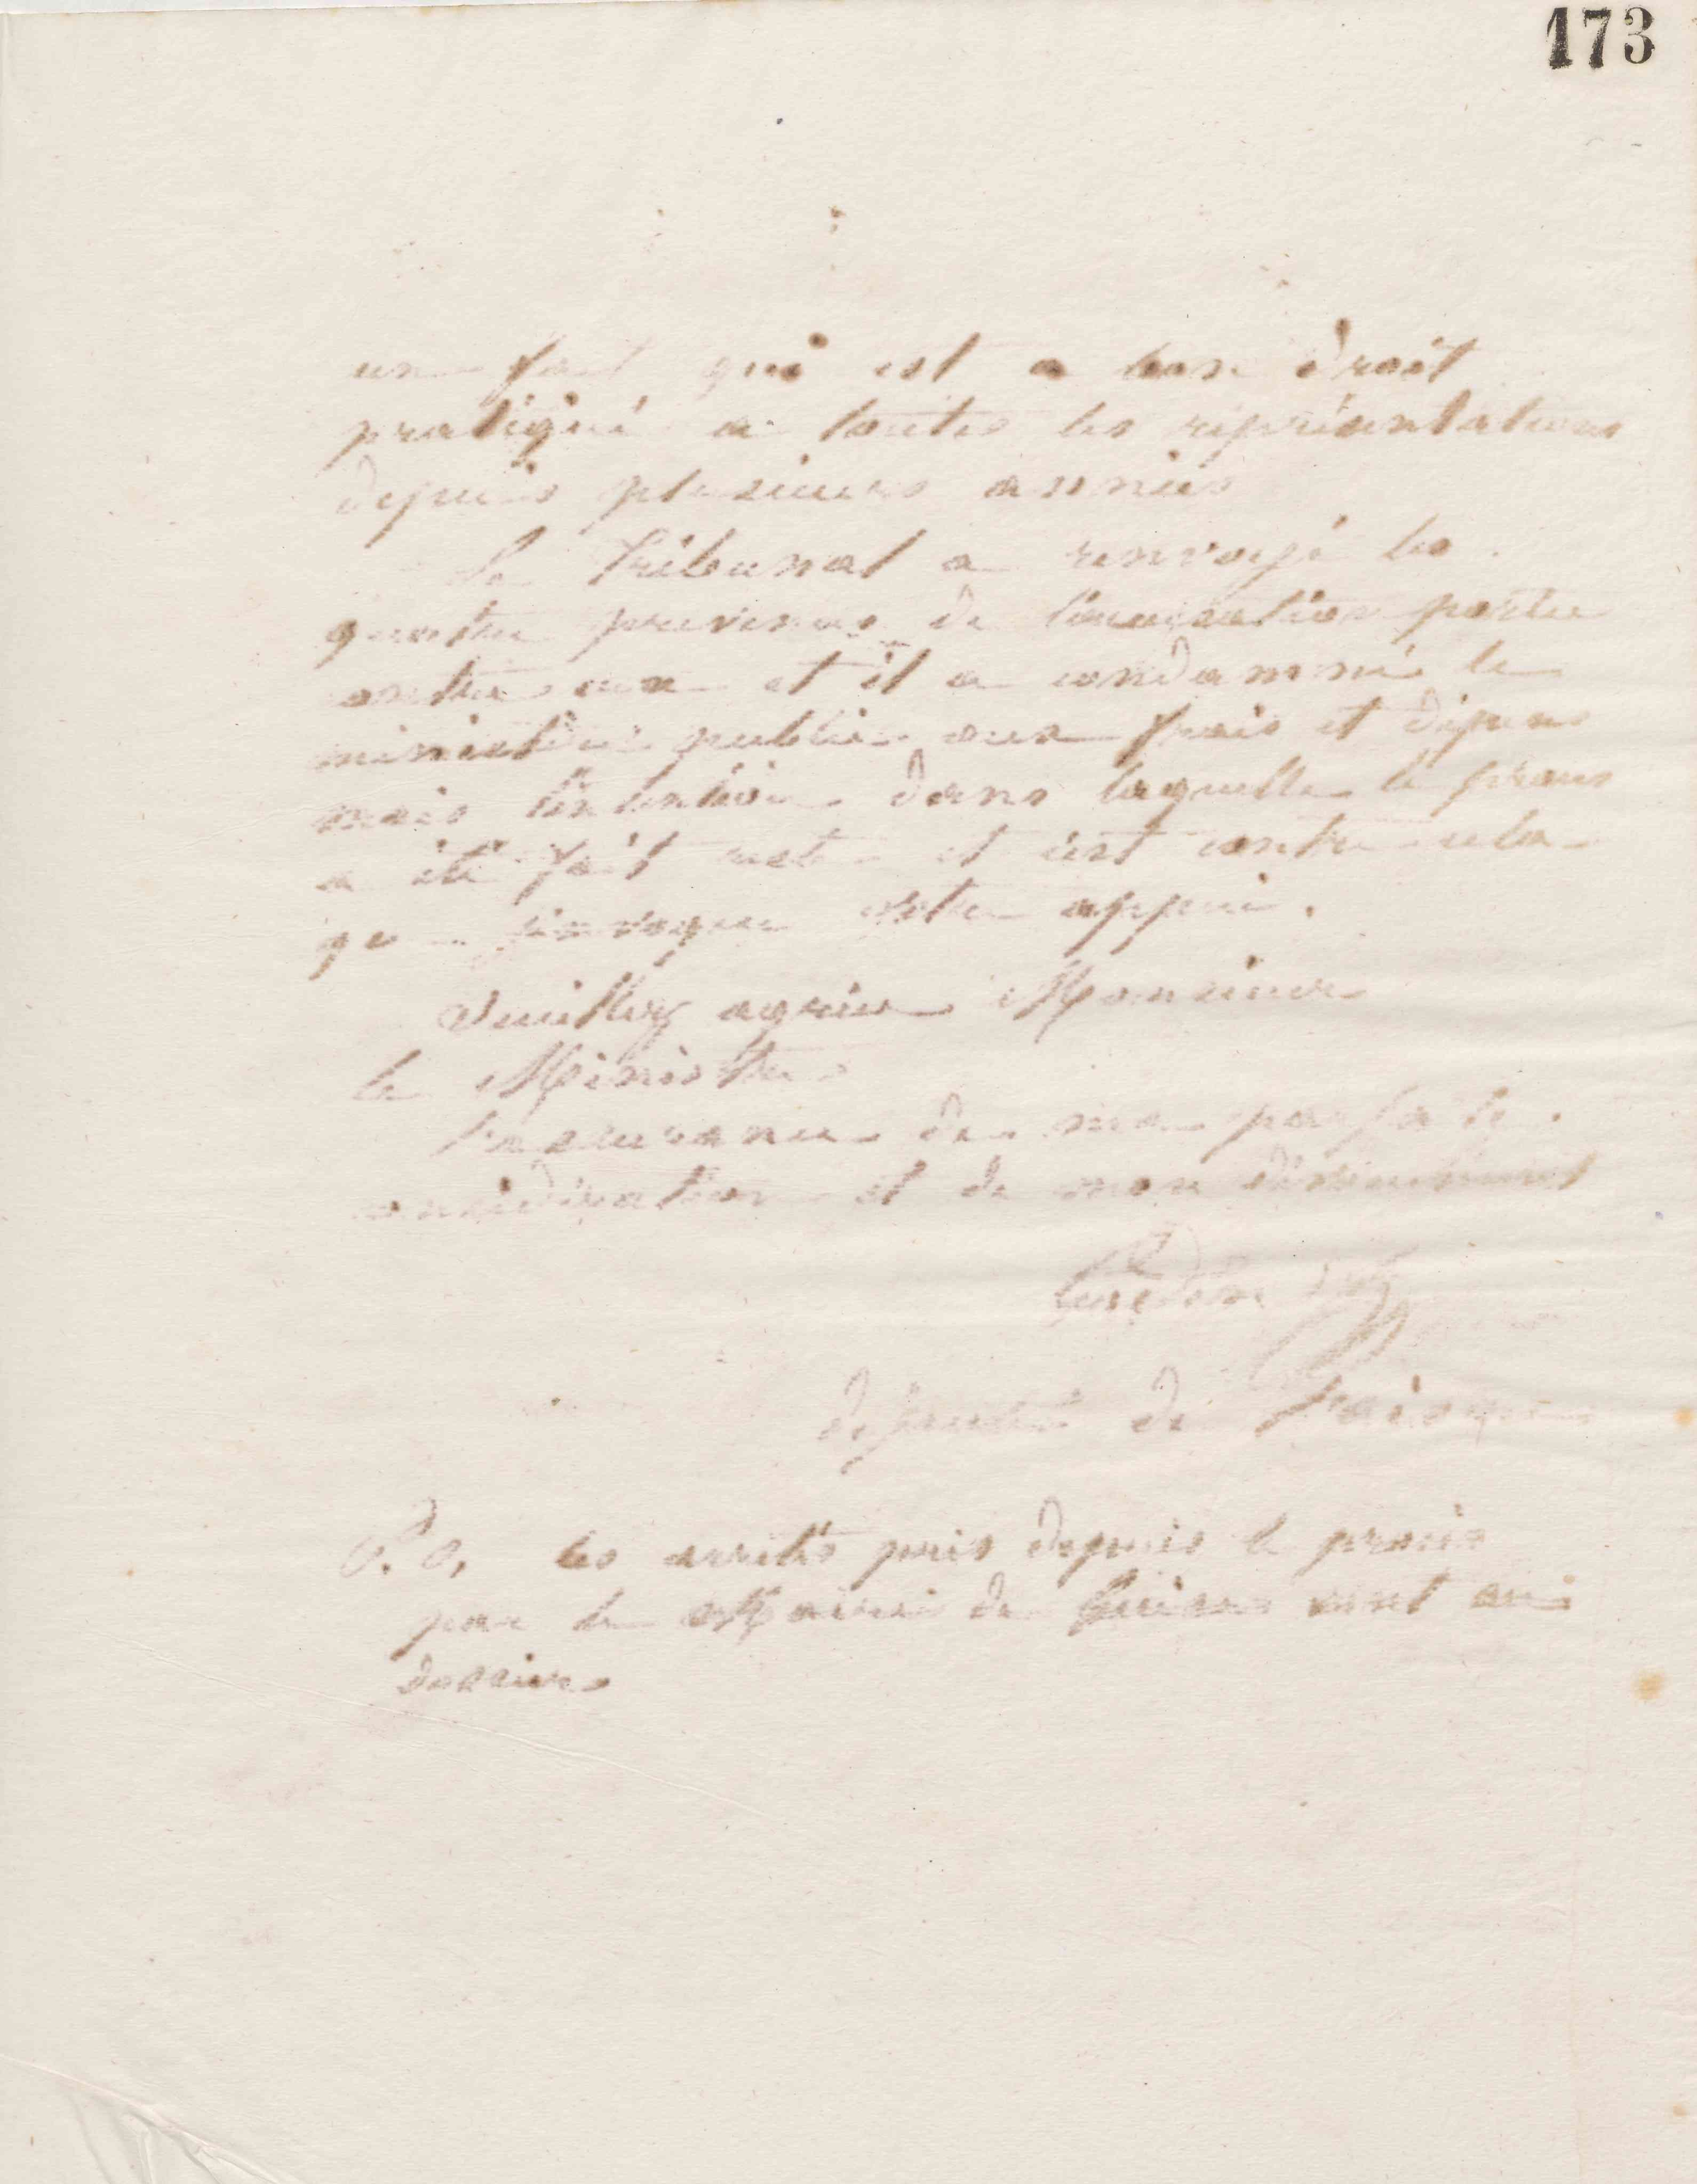 173
un fait qui est a bon droit
pratiqué a toutes les représentations
depuis plusieurs années
Le Tribunal a renvoyé les
quatre prevenus de l'accusation portée
contre eux et il a condamné le
ministère public aux frais et dépens
mais l'intention dans laquelle le procès
a été fait reste et c'est contre cela
que j'invoque votre appui.
Veuillez agréer Monsieur
le Ministre
l'assurance de ma parfaite
considération et de mon dévouement
Godin
députe de l'aisne
P.S. les arrêtés pris depuis le procès
par le Maire de Guise sont au
dossier